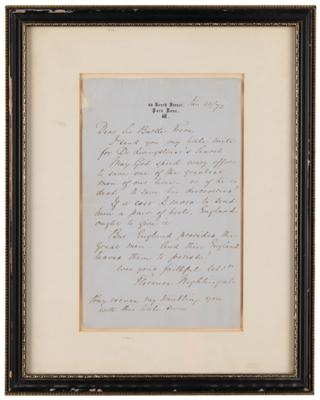 35 South Street,
Park Lane,
W.
Jan 24/72
Dear Sir Bartle Frere
I send you my little mite
for Dr. Livingstone's Search
May God speed every effort
to save one of the greatest
men of our time: or if he is
dead, to save his discoveries!
If it cost £ to send
him a pair of boots, England
ought to give it.
But England provides the
great men. And then England
leaves them to perish!
ever your faithful serv't
Florence Nightingale
Pray excuse my troubling you
with this little sum